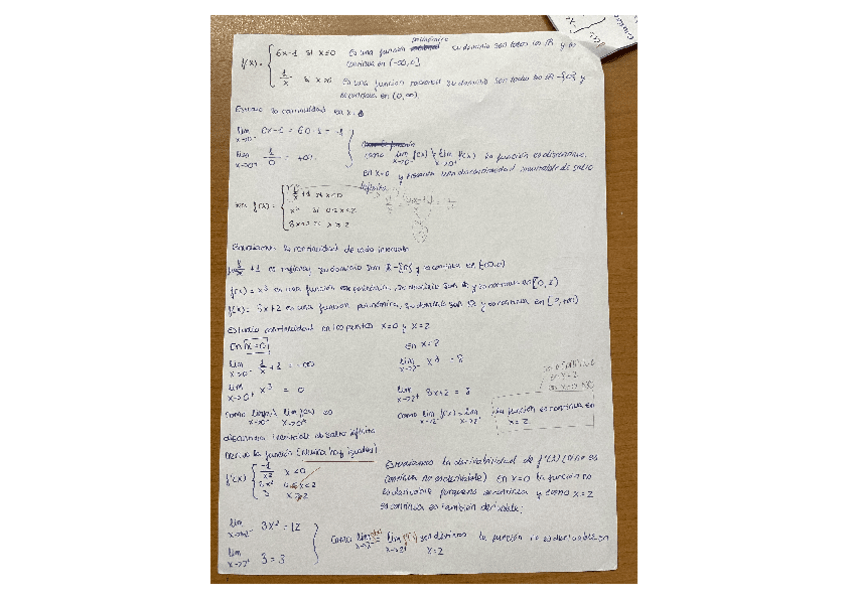 polinómica
f(x) = { 6x-1 si x≤0 Es una función su dominio son todos los R y es
continua en (-∞,0]
1/x si x>0 Es una función racional su dominio son todos los R-{0} y
es continua en (0,∞)
Estudio la continuidad en x=0
lim x→0⁻ 6x-1 = 6·0-1 = -1
lim x→0⁺ 1/0 = +∞
como lim x→0⁻ f(x) ≠ lim x→0⁺ f(x) la función es discontinua
en x=0 y presenta una discontinuidad inevitable de salto
infinito
f(x) = { 1/x +1 si x<0
x³ si 0≤x<2
3x+2 si x≥2
Estudiamos la continuidad de cada intervalo
1/x +1 es racional, su dominio son R-{0} y es continua en (-∞,0)
f(x) = x³ es una función, su dominio son R y es continua en [0,2)
f(x) = 3x+2 es una función polinómica, su dominio son R y es continua en [2,+∞)
Estudio continuidad en los puntos x=0 y x=2
En x=0
lim x→0⁻ 1/x +1 = -∞
lim x→0⁺ x³ = 0
como lim x→0⁻ ≠ lim f(x) x→0⁺ es
discontinua inevitable de salto infinito
En x=2
lim x→2⁻ x³ = 8
lim x→2⁺ 3x+2 = 8
como lim x→2⁻ f(x) = lim x→2⁺ la función es continua en
x=2
Derivo la función
f'(x) { -1/x² x<0
3x² 0≤x<2
3 x≥2
Estudiamos la derivabilidad de f'(x) (si no es
continua no es derivable) En x=0 la función no
es derivable porque no es continua y como x=2
es continua es también derivable;
lim x→2⁻ 3x² = 12
lim x→2⁺ 3 = 3
Como lim x→2⁻ lim x→2⁺ son distintos la función no es derivable en
x=2